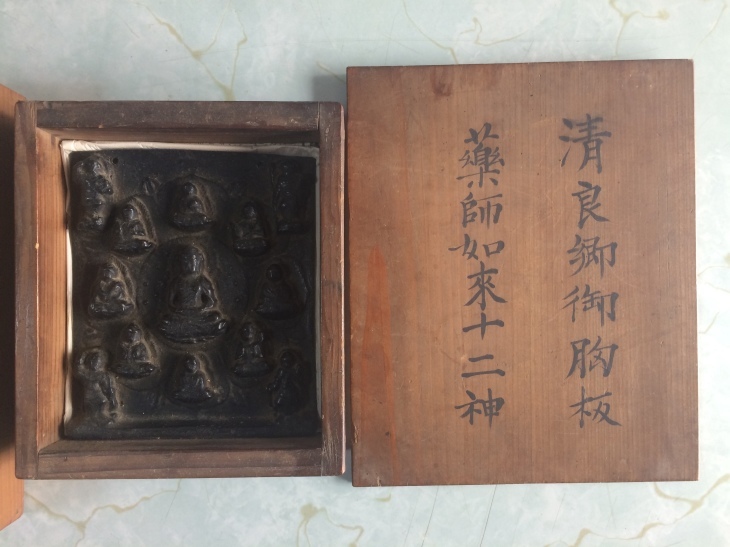 清良卿御胸板
藥師如來十二神